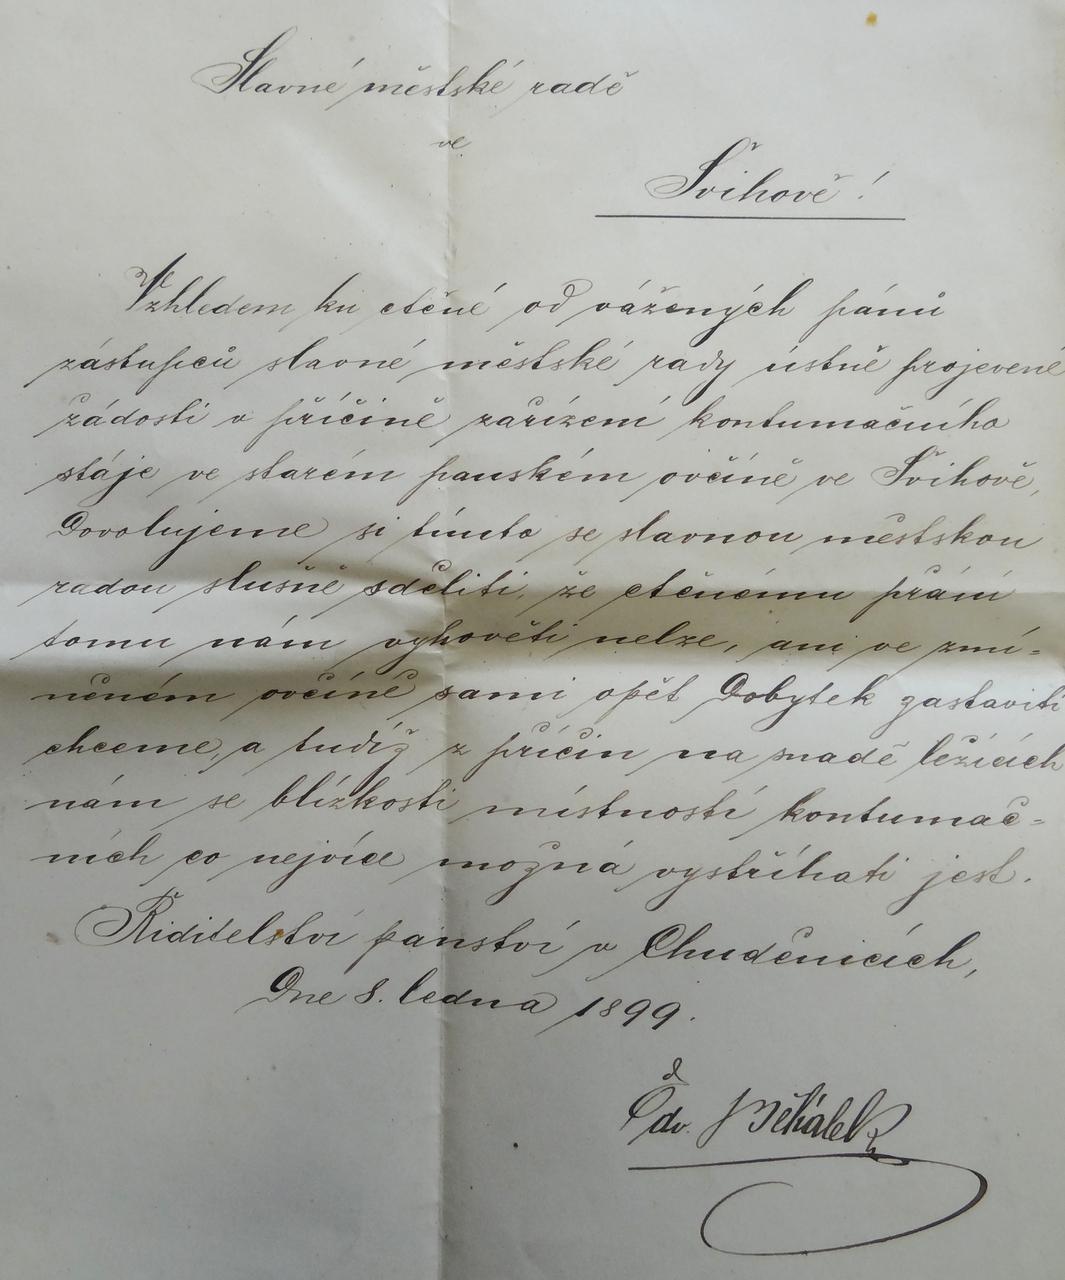 Slavné městské radě
ve
Švihově!
Vzhledem ku ctěné od vážených pánů
zástupců slavné městské rady ústně projevené
žádosti v příčině zařízení kontumačního
stáje ve starém panském ovčíně ve Švihově,
dovolujeme si tímto se slavnou městskou
radou slušně sděliti, že ctěnému přání
tomu nám vyhověti nelze, ani ve zmí-
něném ovčíně sami opět dobytek zastaviti
chceme, a tudíž z příčin na snadě ležících
nám se blízkosti místností kontumač-
ních co nejvíce možná vystříhati jest.
Řiditelství panství v Chudenicích,
Dne 8. ledna 1899.
Edv.